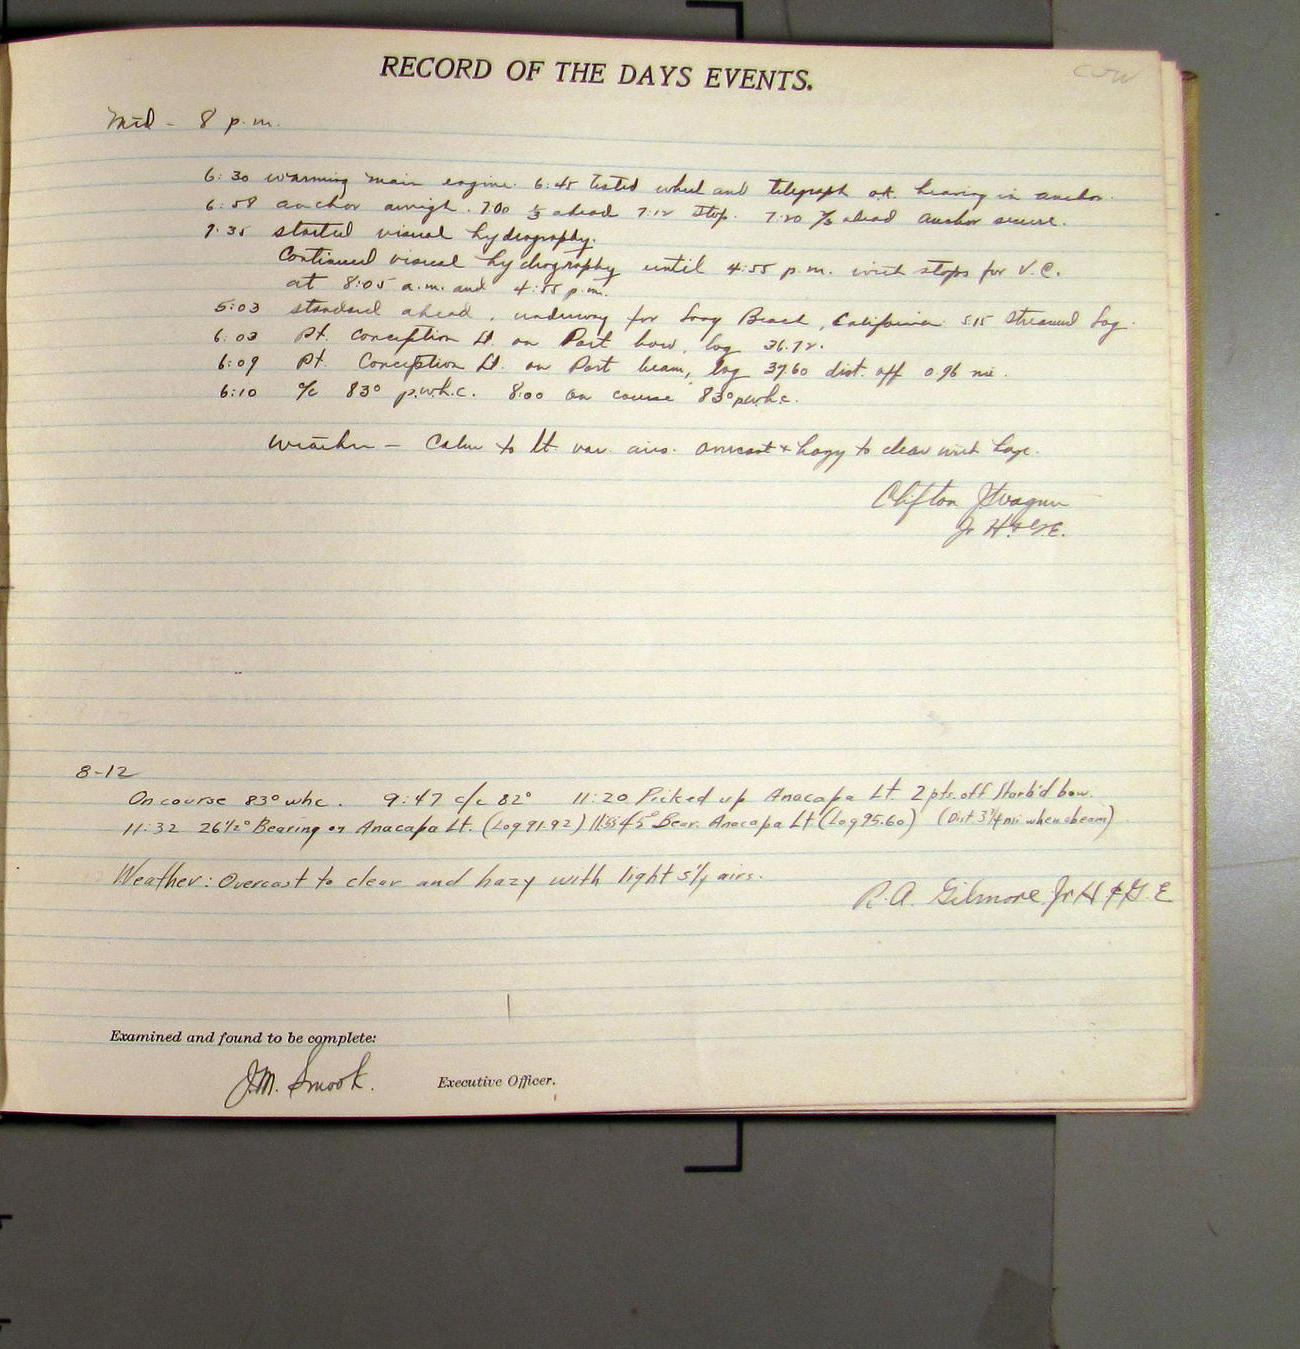 RECORD OF THE DAYS EVENTS.
Mid - 8 p.m.
6:30 warming main engine. 6:45 tested wheel and telegraph ok. heaving in anchor.
6:58 anchor aweigh. 7:00 1/3 ahead 7:12 stop. 7:20 2/3 ahead anchor secure.
7:35 started visual hydrography.
Continued visual hydrography until 4:55 p.m. with stops for V.C.
at 8:05 a.m. and 4:55 p.m.
5:03 standard ahead, underway for Long Beach, California 5:15 Streamed log.
6:03 Pt. Conception Lt. on Port bow, log 36.72.
6:09 Pt. Conception Lt. on Port beam, log 37.60 dist. off 0.96 mi.
6:10 c/c 83° p.w.h.c. 8:00 on course 83° pwhc.
Weather - Calm to lt. var. airs. overcast & hazy to clear with haze.
Clifton J Wagner
Jr H & G.E.
8-12
On course 83° whc. 9:47 c/c 82° 11:20 Picked up Anacapa Lt. 2 pts. off Starb'd bow.
11:32 26 1/2° Bearing on Anacapa Lt. (Log 91.92) 11:55 45° Bear. Anacapa Lt (Log 95.60) (Dist. 3 1/4 mi when abeam)
Weather: Overcast to clear and hazy with light s'ly airs.
R.A. Gilmore Jr H & G. E
Examined and found to be complete:
J.M. Smook. Executive Officer.